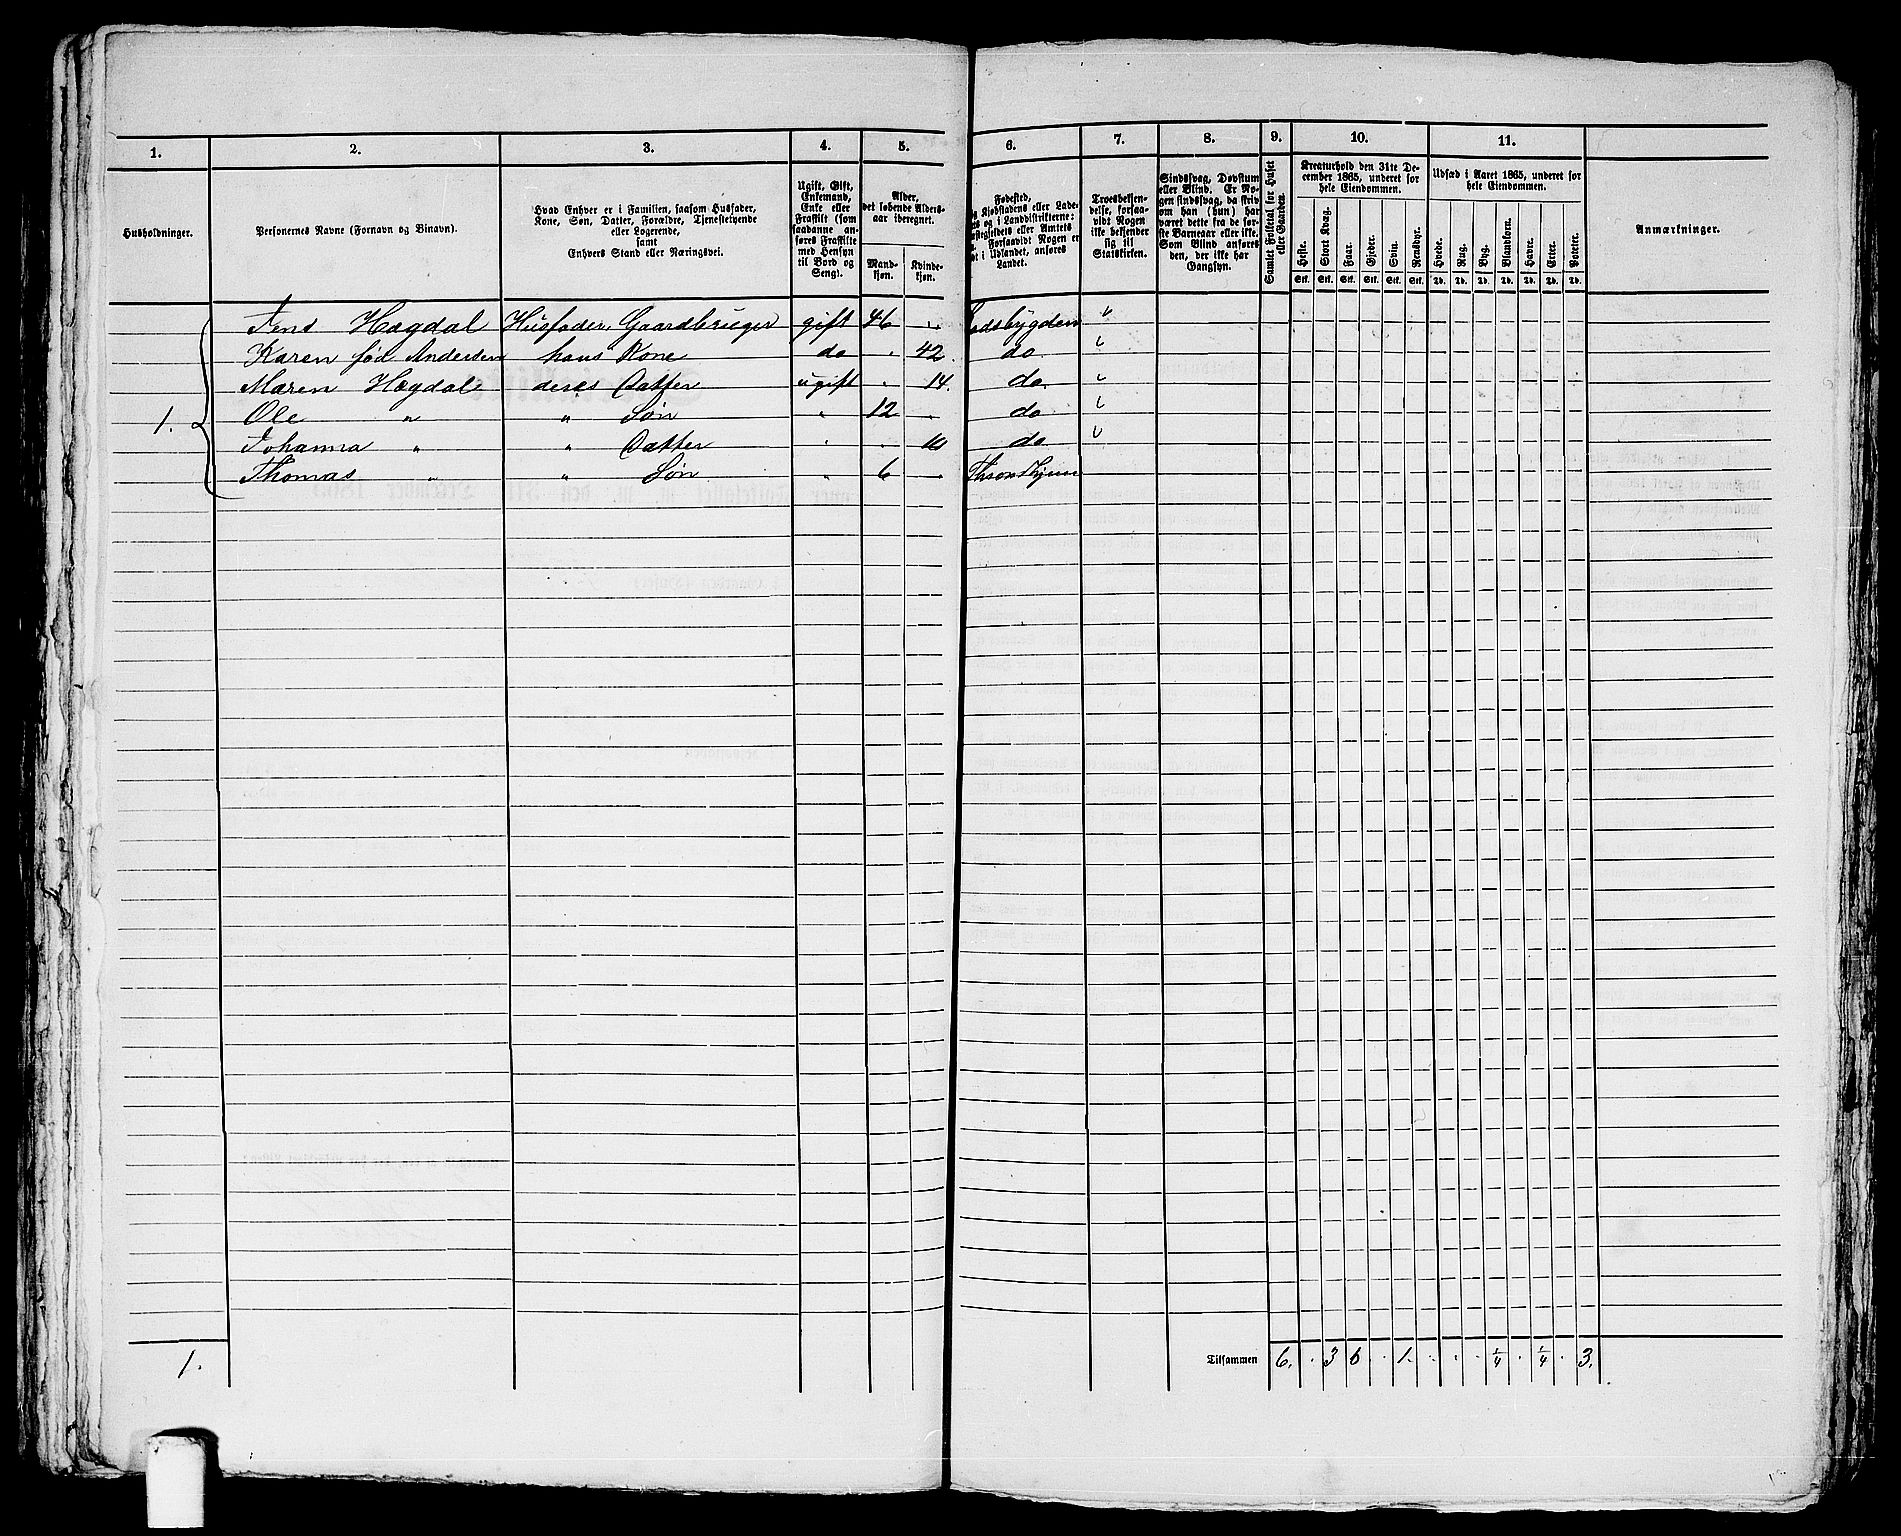 1. 2. 3. 4. 5. 6. 7. 8. 9. 10. 11.
Husholdninger.
Personernes Navne (Fornavn og Binavn).
Hvad Enhver er i Familien, saasom Husfader,
Kone, Søn, Datter, Forældre, Tjenestetyende
eller Logerende,
samt
Enhvers Stand eller Næringsvei.
Ugift, Gift,
Enkemand,
Enke eller
Fraskilt (som
saadanne an-
føres Fraskilte
med Hensyn
til Bord og
Seng).
Alder,
det løbende Alders-
aar iberegnet.
Mand-
kjøn.
Kvinde-
kjøn.
Fødested,
Kjøbstadens eller Lade-
og i Landdistrikterne:
eller Amtets
Forsaavidt Nogen er
i Udlandet, anføres
Landet.
Troesbekjen-
delse, forsaa-
vidt Nogen
ikke bekjender
sig til
Statskirken.
Sindssvag, Døvstum
eller Blind. Er No-
gen sindssvag, da skriv
om han (hun) har
været dette fra de før-
ste Barneaar eller ikke.
Som Blind anføres
den, der ikke har
Gangsyn.
Samlet Folketal for Huset
eller Gaarden.
Kreaturhold den 31te De-
cember 1865, underet for
hele Eiendommen.
Heste. Stort Kvæg. Faar. Gjeder. Svin. Rensdyr.
Stk. Stk. Stk. Stk. Stk. Stk.
Udsæd i Aaret 1865, underet for
hele Eiendommen.
Hvede. Rug. Byg. Blandkorn. Havre. Erter. Poteter.
Td. Td. Td. Td. Td. Td. Td.
Anmærkninger.
Jens Hægdal Husfader, Gaardbruger gift 46 . "
Karen fød Andersen hans Kone do . 42. do "
Maren Hægdal deres Datter ugift . 14. do "
1. Ole " " Søn " 12 . do "
Johanna " " Datter " . 10 do "
Thomas " " Søn " 6 .
1. Tilsammen 6. . 3 6 . 1 . . . 1/4 . 1/4 . 3.